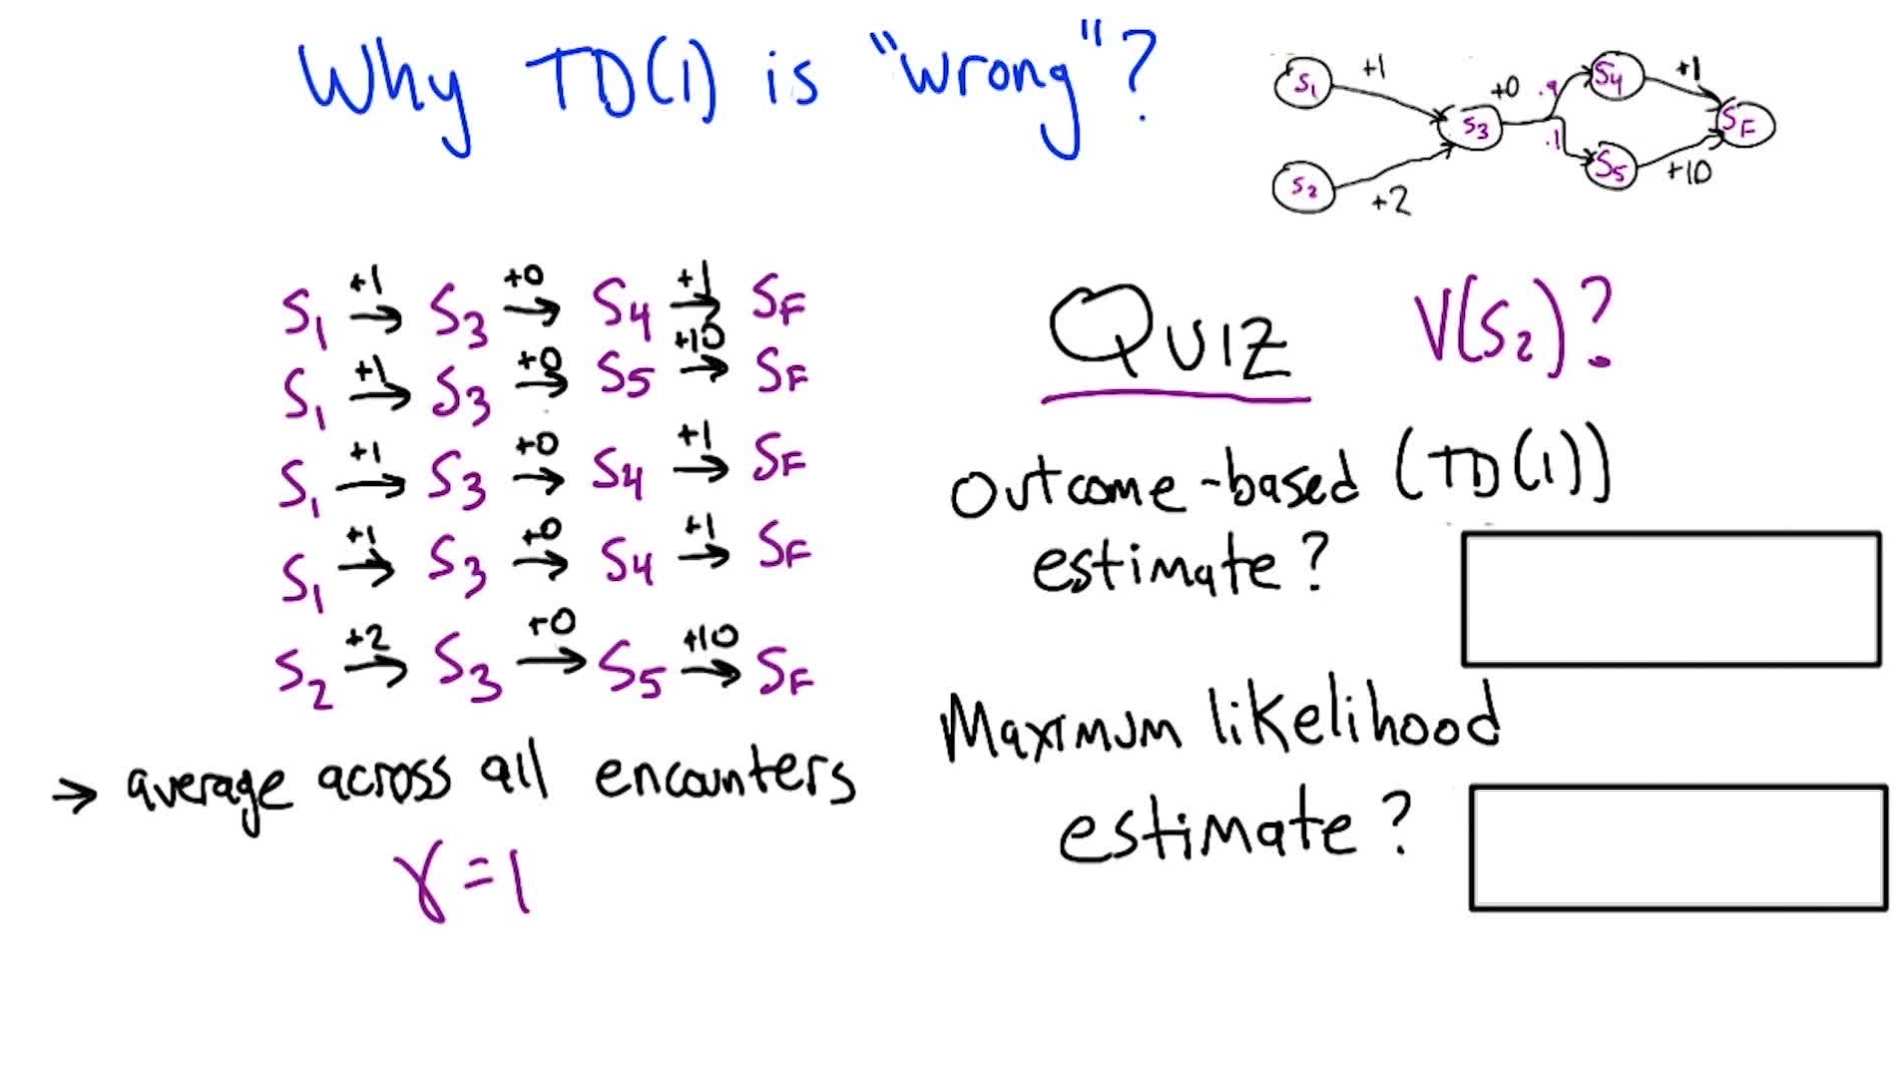 Why TD(1) is "wrong"?
S1 +1 S3 +0 .9 S4 +1 SF
S2 +2 .1 S5 +10
S1 +1→ S3 +0→ S4 +1→ SF
S1 +1→ S3 +0→ S5 +10→ SF
S1 +1→ S3 +0→ S4 +1→ SF
S1 +1→ S3 +0→ S4 +1→ SF
S2 +2→ S3 +0→ S5 +10→ SF
→ average across all encounters
γ=1
QUIZ V(S2)?
Outcome-based (TD(1))
estimate?
Maximum likelihood
estimate?